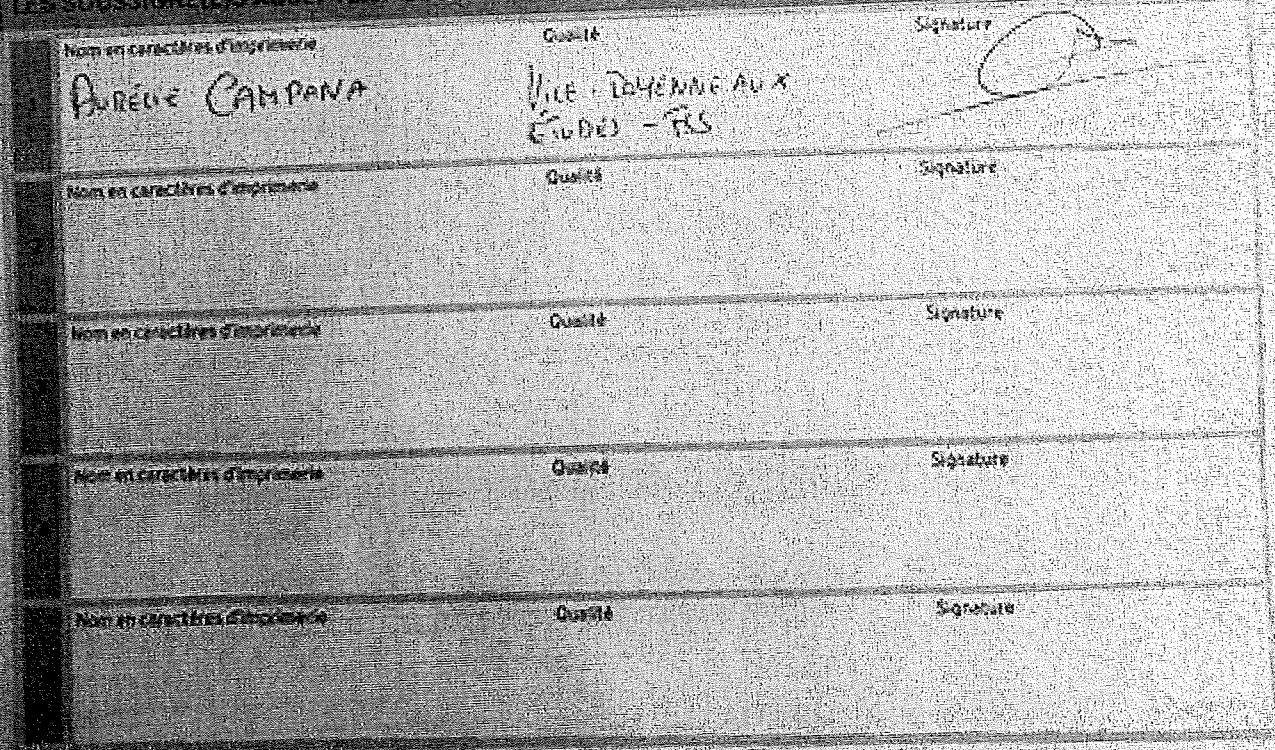 LES SOUSSIGNÉ(E)S
Nom en caractères d'imprimerie Qualité Signature
AURÉLIE CAMPANA VICE-DOYENNE AUX
ÉTUDES - FSS
Nom en caractères d'imprimerie Qualité Signature
Nom en caractères d'imprimerie Qualité Signature
Nom en caractères d'imprimerie Qualité Signature
Nom en caractères d'imprimerie Qualité Signature